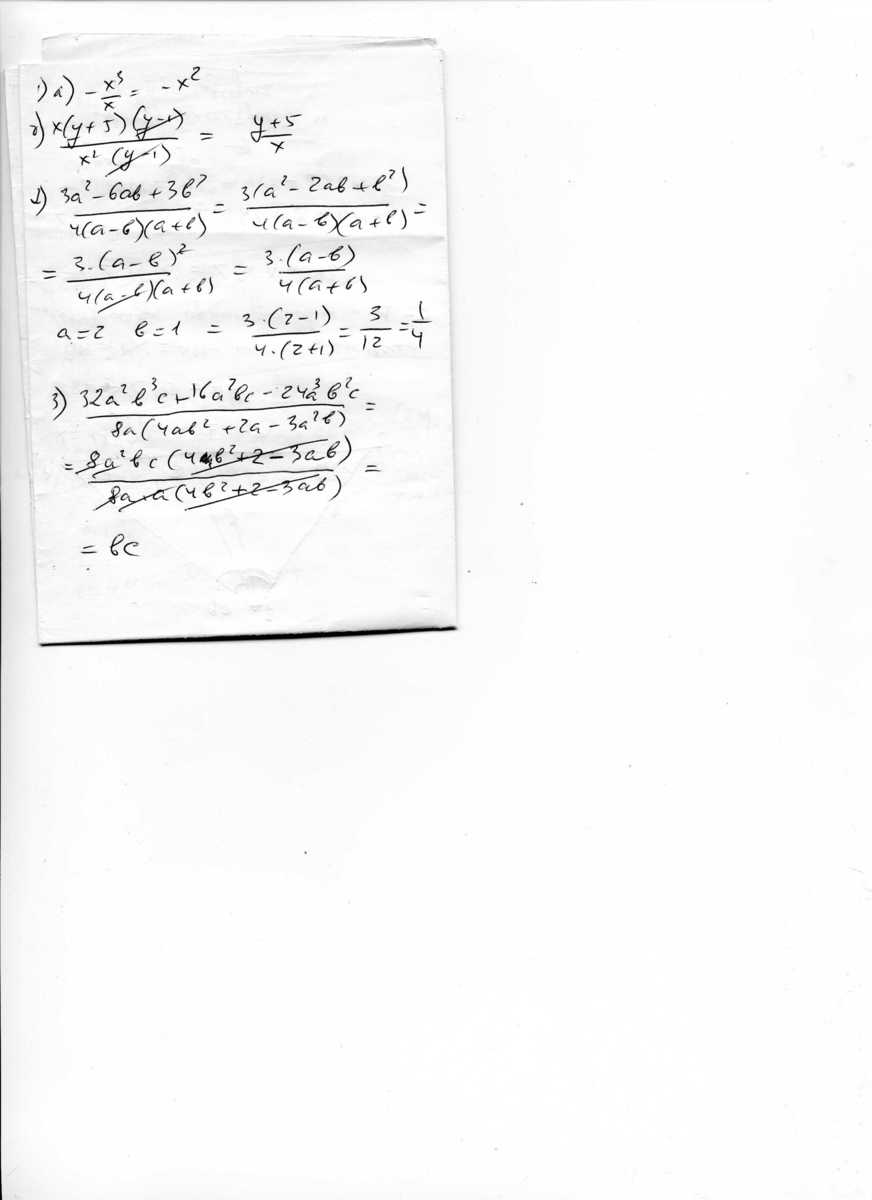 1) а) - x³/x = - x²
б) x(y+5)(y-1) / x²(y-1) = y+5 / x
2) 3a²-6aв+3в² / 4(a-в)(a+в) = 3(a²-2aв+в²) / 4(a-в)(a+в) =
= 3·(a-в)² / 4(a-в)(a+в) = 3·(a-в) / 4(a+в)
a=2 в=1 = 3·(2-1) / 4·(2+1) = 3/12 = 1/4
3) 32a²в³c+16a²вc-24a³в²c / 8a(4aв²+2a-3a²в) =
= 8a²вc(4в²+2-3aв) / 8a·a(4в²+2-3aв) =
= вc